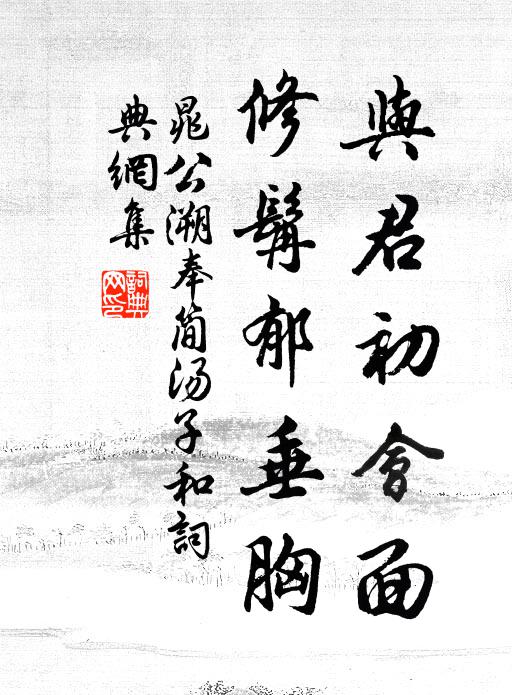 與君初會面
修髯郁垂胸
晁公溯奉简汤子和詞
典網集
詞典网印